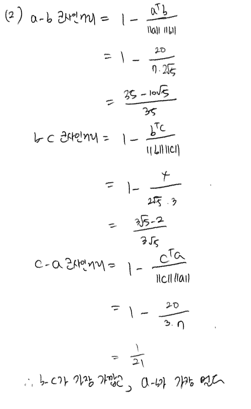 (2) a-b 코사인거리 = 1 - aᵀb / ||a|| ||b||
= 1 - 20 / 7·2√5
= 35 - 10√5 / 35
b-c 코사인거리 = 1 - bᵀc / ||b|| ||c||
= 1 - 4 / 2√5·3
= 3√5 - 2 / 3√5
c-a 코사인거리 = 1 - cᵀa / ||c|| ||a||
= 1 - 20 / 3·7
= 1 / 21
∴ b-c가 가장 가깝고, a-b가 가장 멀다